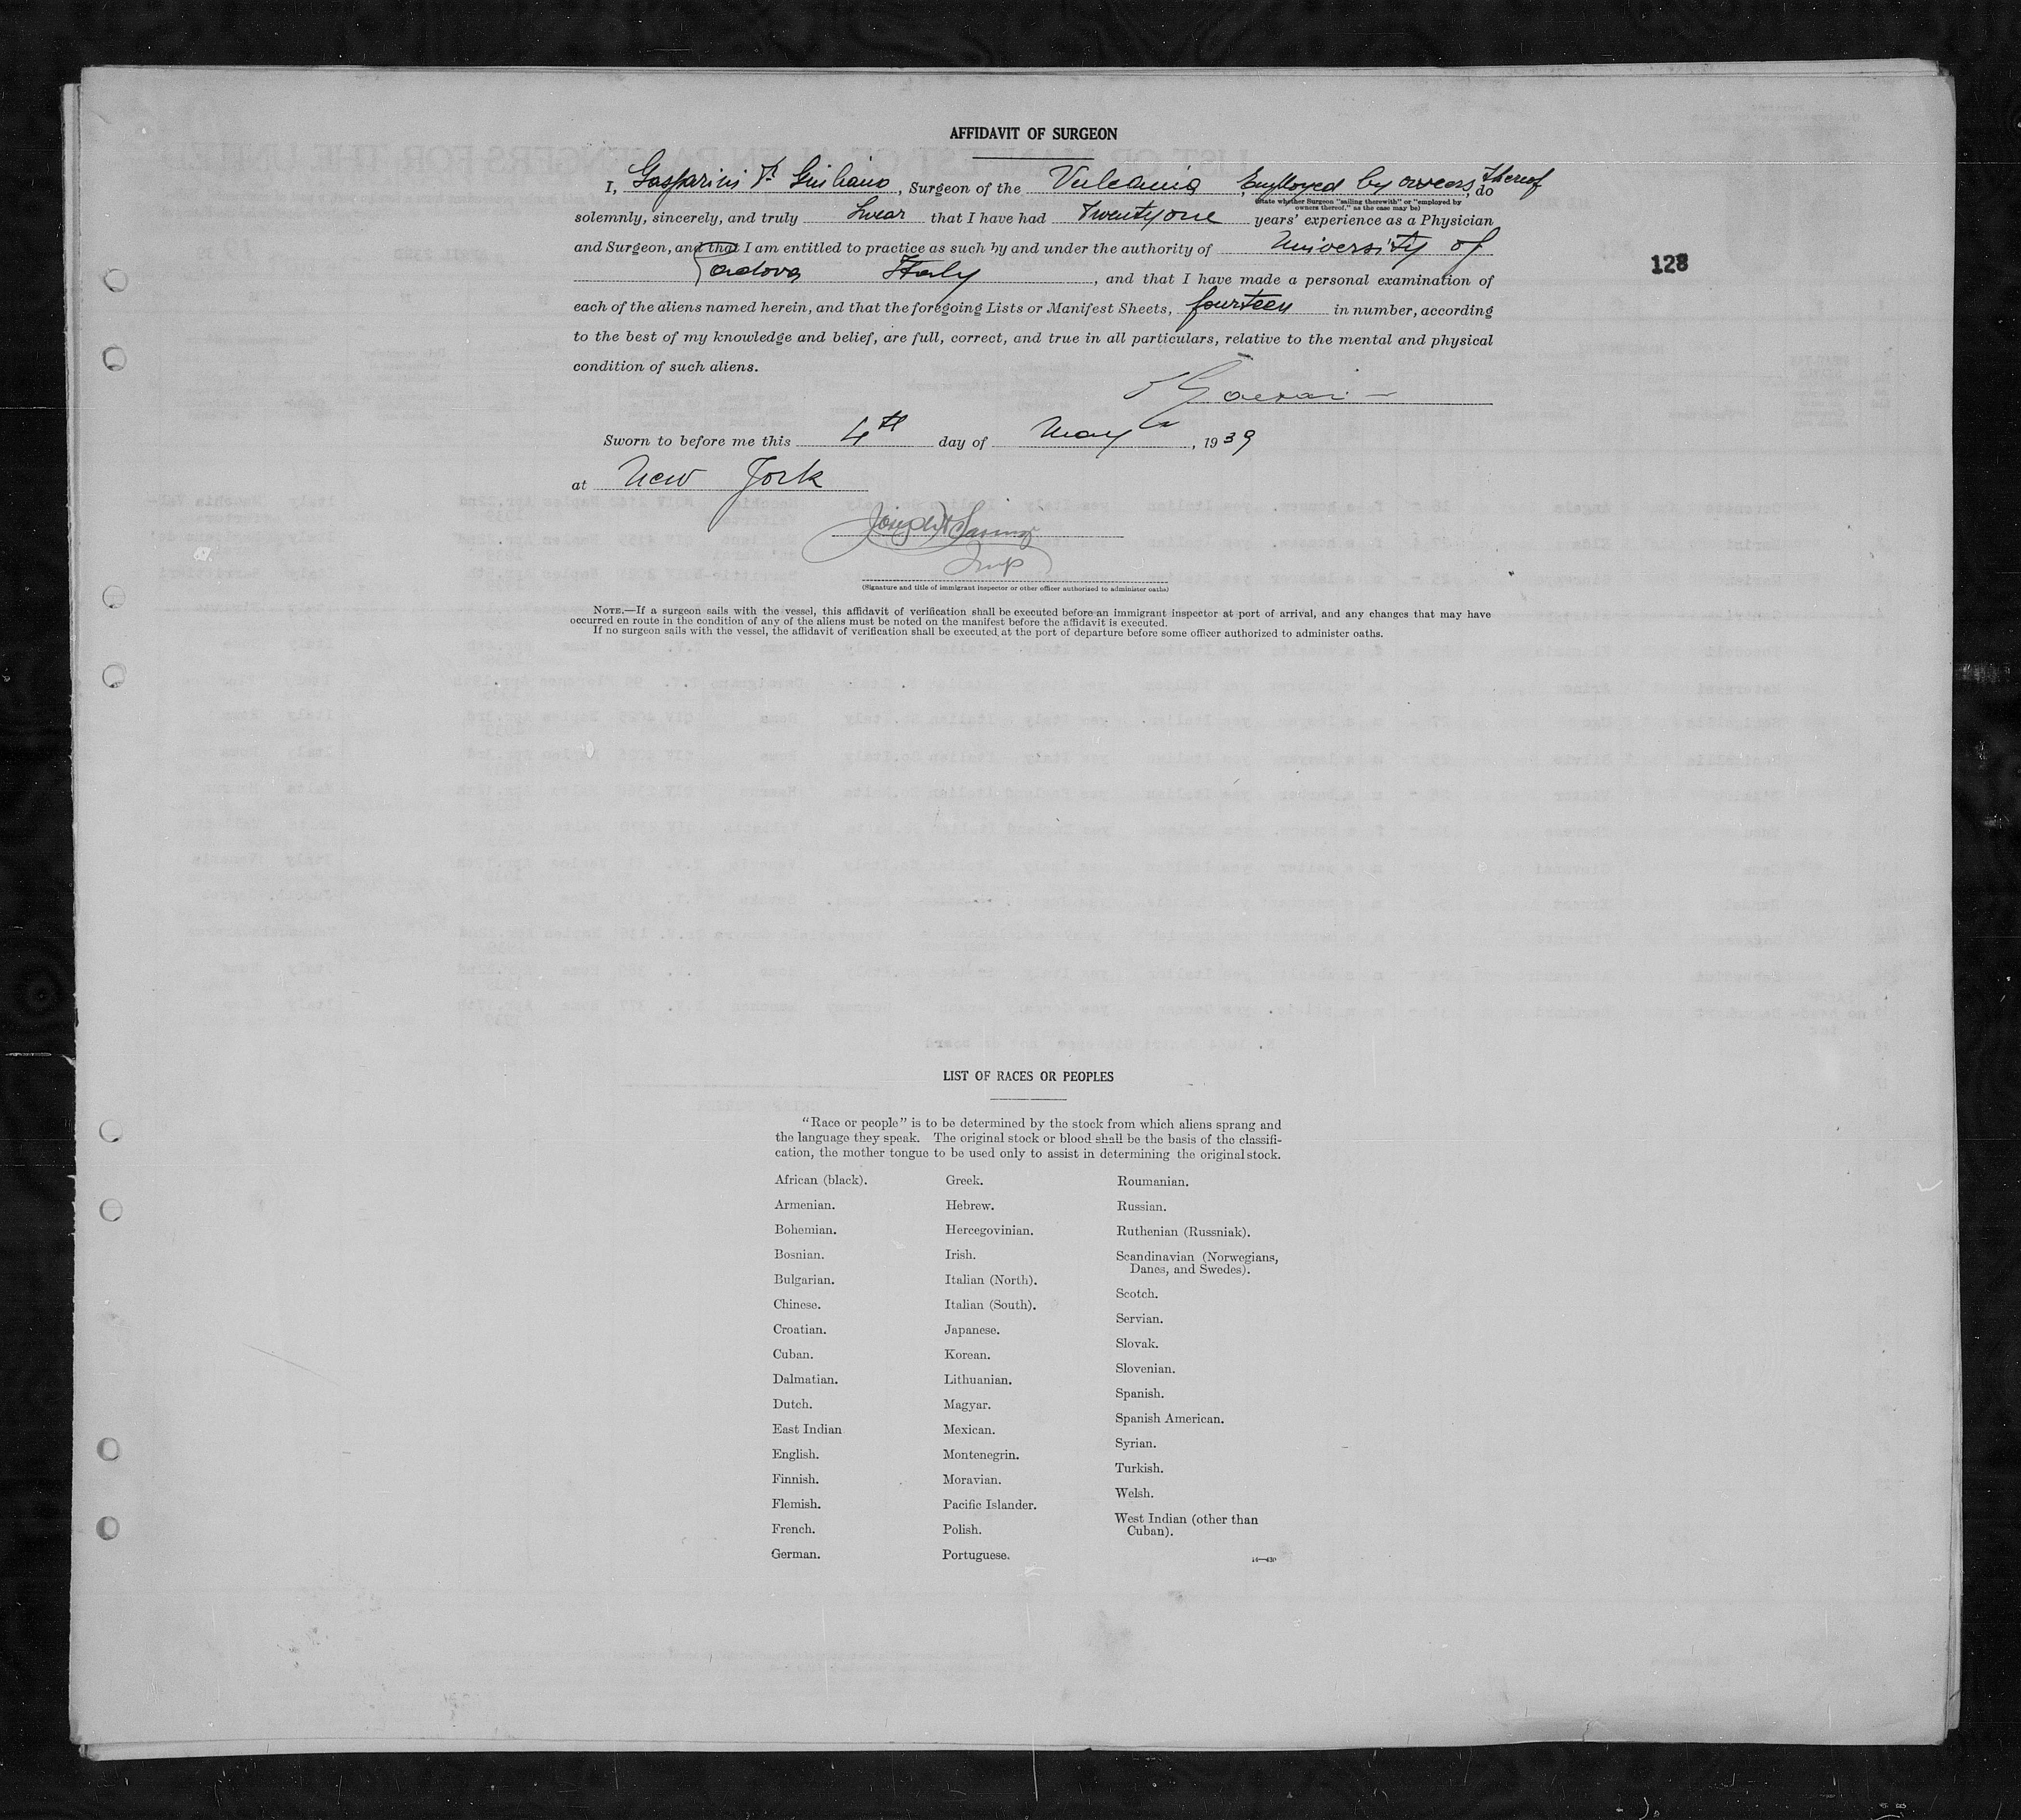 AFFIDAVIT OF SURGEON
I, Gasparini Dr Giuliano, Surgeon of the Vulcania, Employed by owners thereof, do
(State whether Surgeon "sailing therewith" or "employed by
owners thereof," as the case may be)
solemnly, sincerely, and truly swear that I have had Twentyone years' experience as a Physician
and Surgeon, and that I am entitled to practice as such by and under the authority of University of
Padova Italy, and that I have made a personal examination of
128
each of the aliens named herein, and that the foregoing Lists or Manifest Sheets, fourteen in number, according
to the best of my knowledge and belief, are full, correct, and true in all particulars, relative to the mental and physical
condition of such aliens.
Sworn to before me this 4th day of May, 1939
at New York
Insp
(Signature and title of immigrant inspector or other officer authorized to administer oaths)
NOTE.—If a surgeon sails with the vessel, this affidavit of verification shall be executed before an immigrant inspector at port of arrival, and any changes that may have
occurred en route in the condition of any of the aliens must be noted on the manifest before the affidavit is executed.
If no surgeon sails with the vessel, the affidavit of verification shall be executed at the port of departure before some officer authorized to administer oaths.
LIST OF RACES OR PEOPLES
"Race or people" is to be determined by the stock from which aliens sprang and
the language they speak. The original stock or blood shall be the basis of the classifi-
cation, the mother tongue to be used only to assist in determining the original stock.
African (black).
Armenian.
Bohemian.
Bosnian.
Bulgarian.
Chinese.
Croatian.
Cuban.
Dalmatian.
Dutch.
East Indian
English.
Finnish.
Flemish.
French.
German.
Greek.
Hebrew.
Hercegovinian.
Irish.
Italian (North).
Italian (South).
Japanese.
Korean.
Lithuanian.
Magyar.
Mexican.
Montenegrin.
Moravian.
Pacific Islander.
Polish.
Portuguese.
Roumanian.
Russian.
Ruthenian (Russniak).
Scandinavian (Norwegians,
Danes, and Swedes).
Scotch.
Servian.
Slovak.
Slovenian.
Spanish.
Spanish American.
Syrian.
Turkish.
Welsh.
West Indian (other than
Cuban).